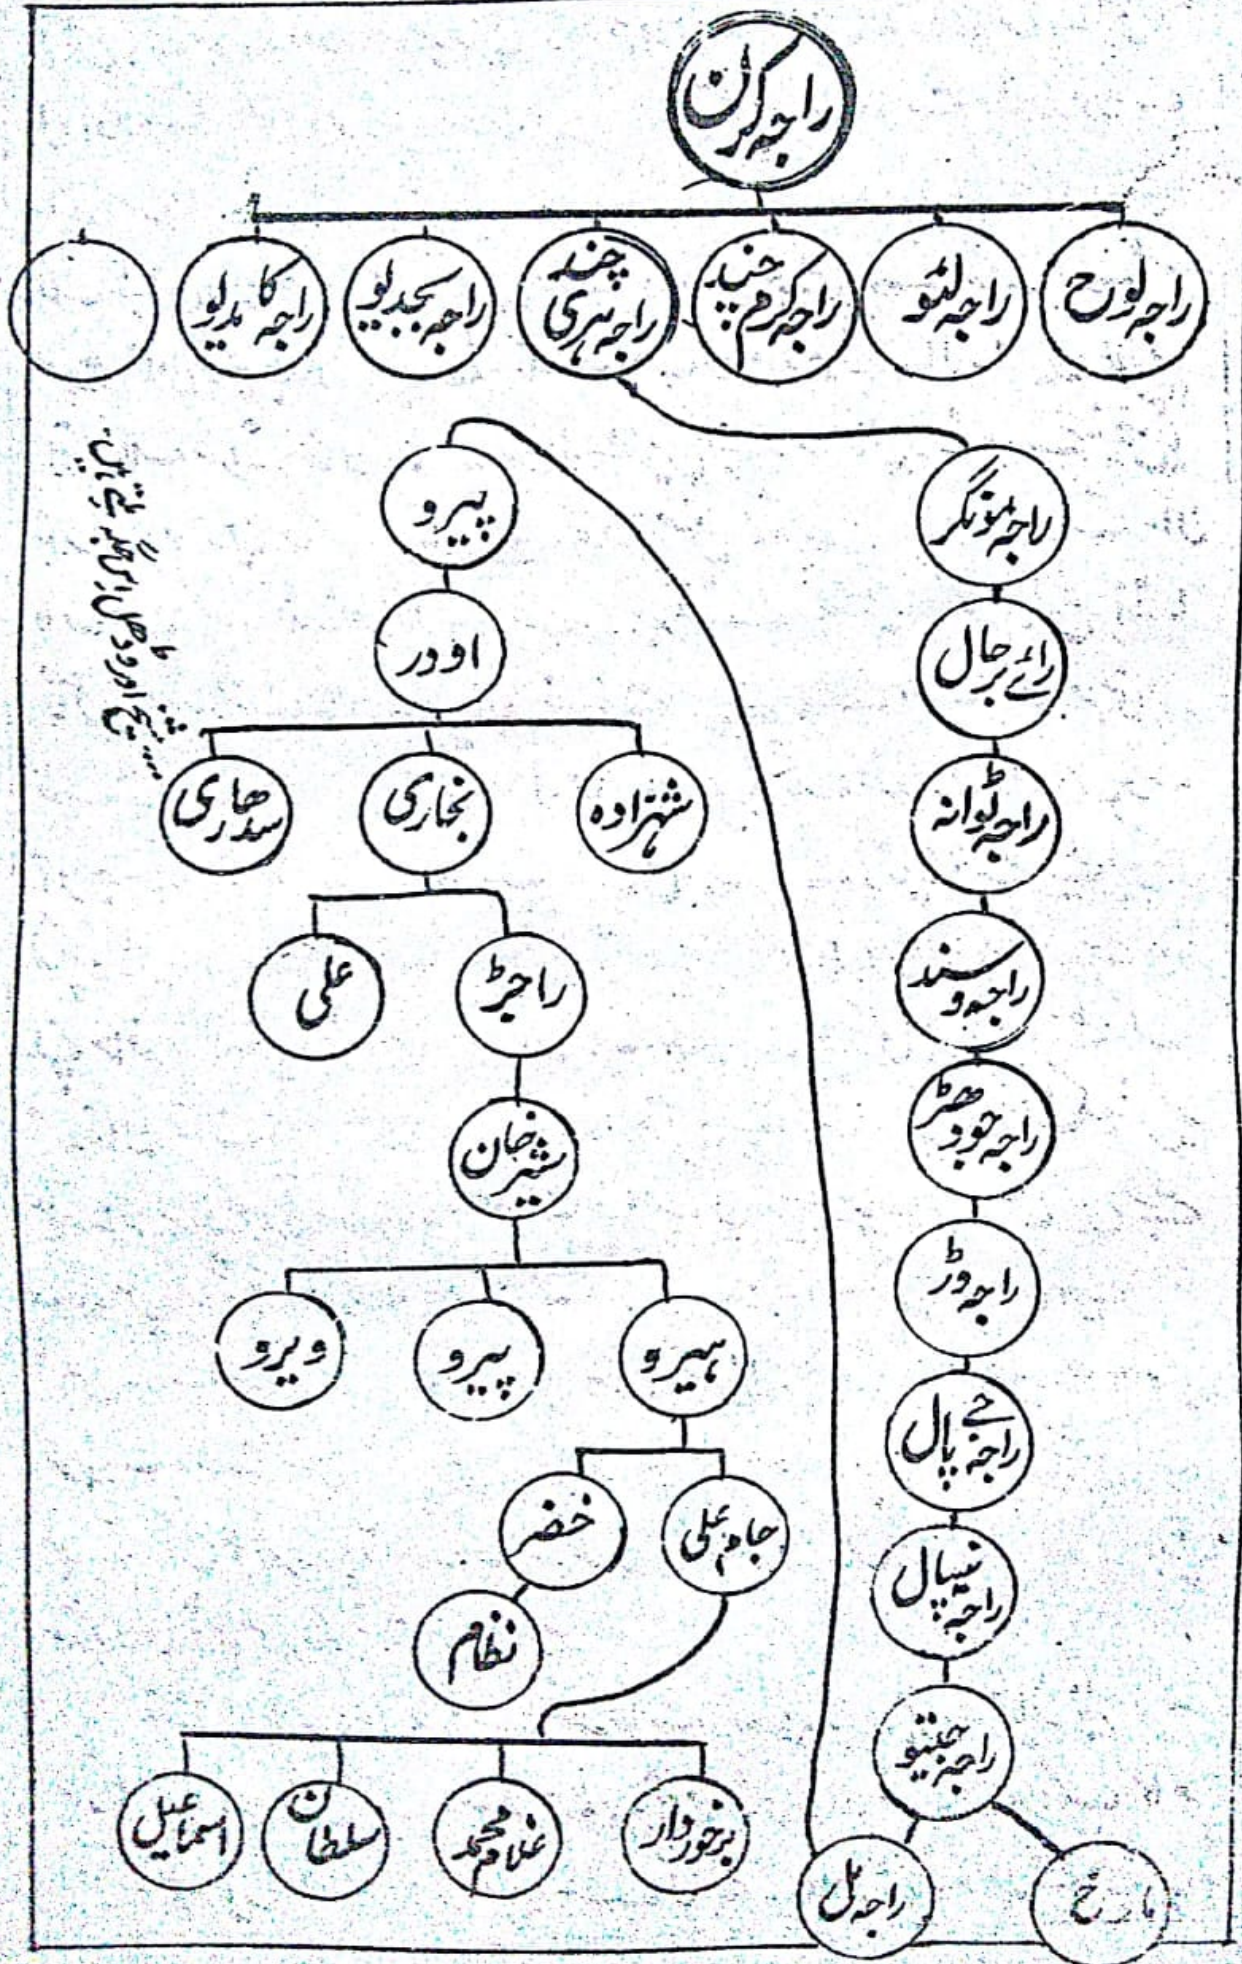 راجہ کرن
راجہ لورح
راجہ لٹو
راجہ کرم چند
راجہ ہری چند
راجہ سجدیو
راجہ کامدیو
راجہ
رائے برحال
راجہ ٹوانہ
راجہ وسند
راجہ جودھڑ
راجہ وڑ
راجہ جے پال
راجہ نیپال
راجہ
راجہ مل
پیرو
اودر
شہزادہ
بخاری
سدھاری
راجڑ
علی
شیر خان
ہیرو
پیرو
ویرو
جام علی
خضر
نظام
برخوردار
غلام محمد
سلطان
اسماعیل
اور ودھل اس جگہ ملتے ہیں۔